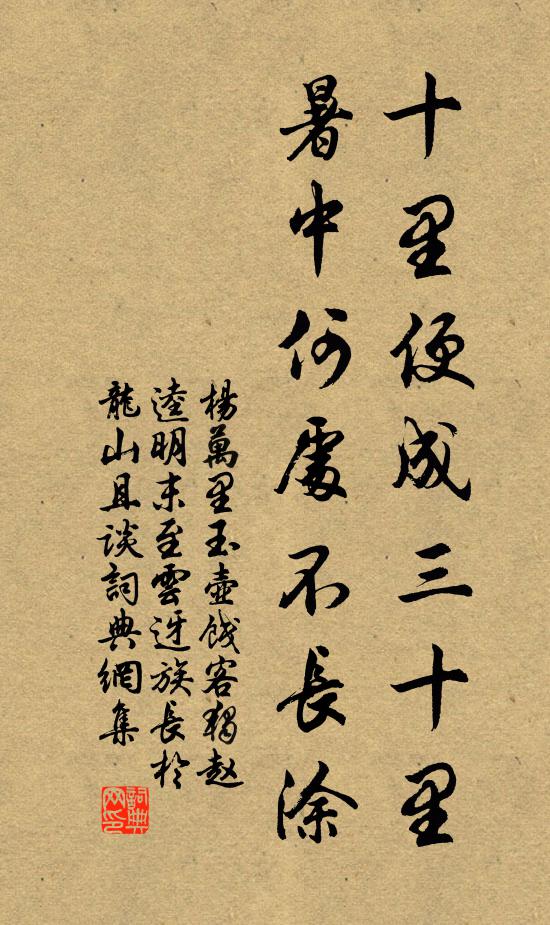 十里便成三十里
暑中何處不長涂
楊萬里玉壺餞客獨趙
逵明末至雲迓族長於
龍山且談詞典網集
詞典网印